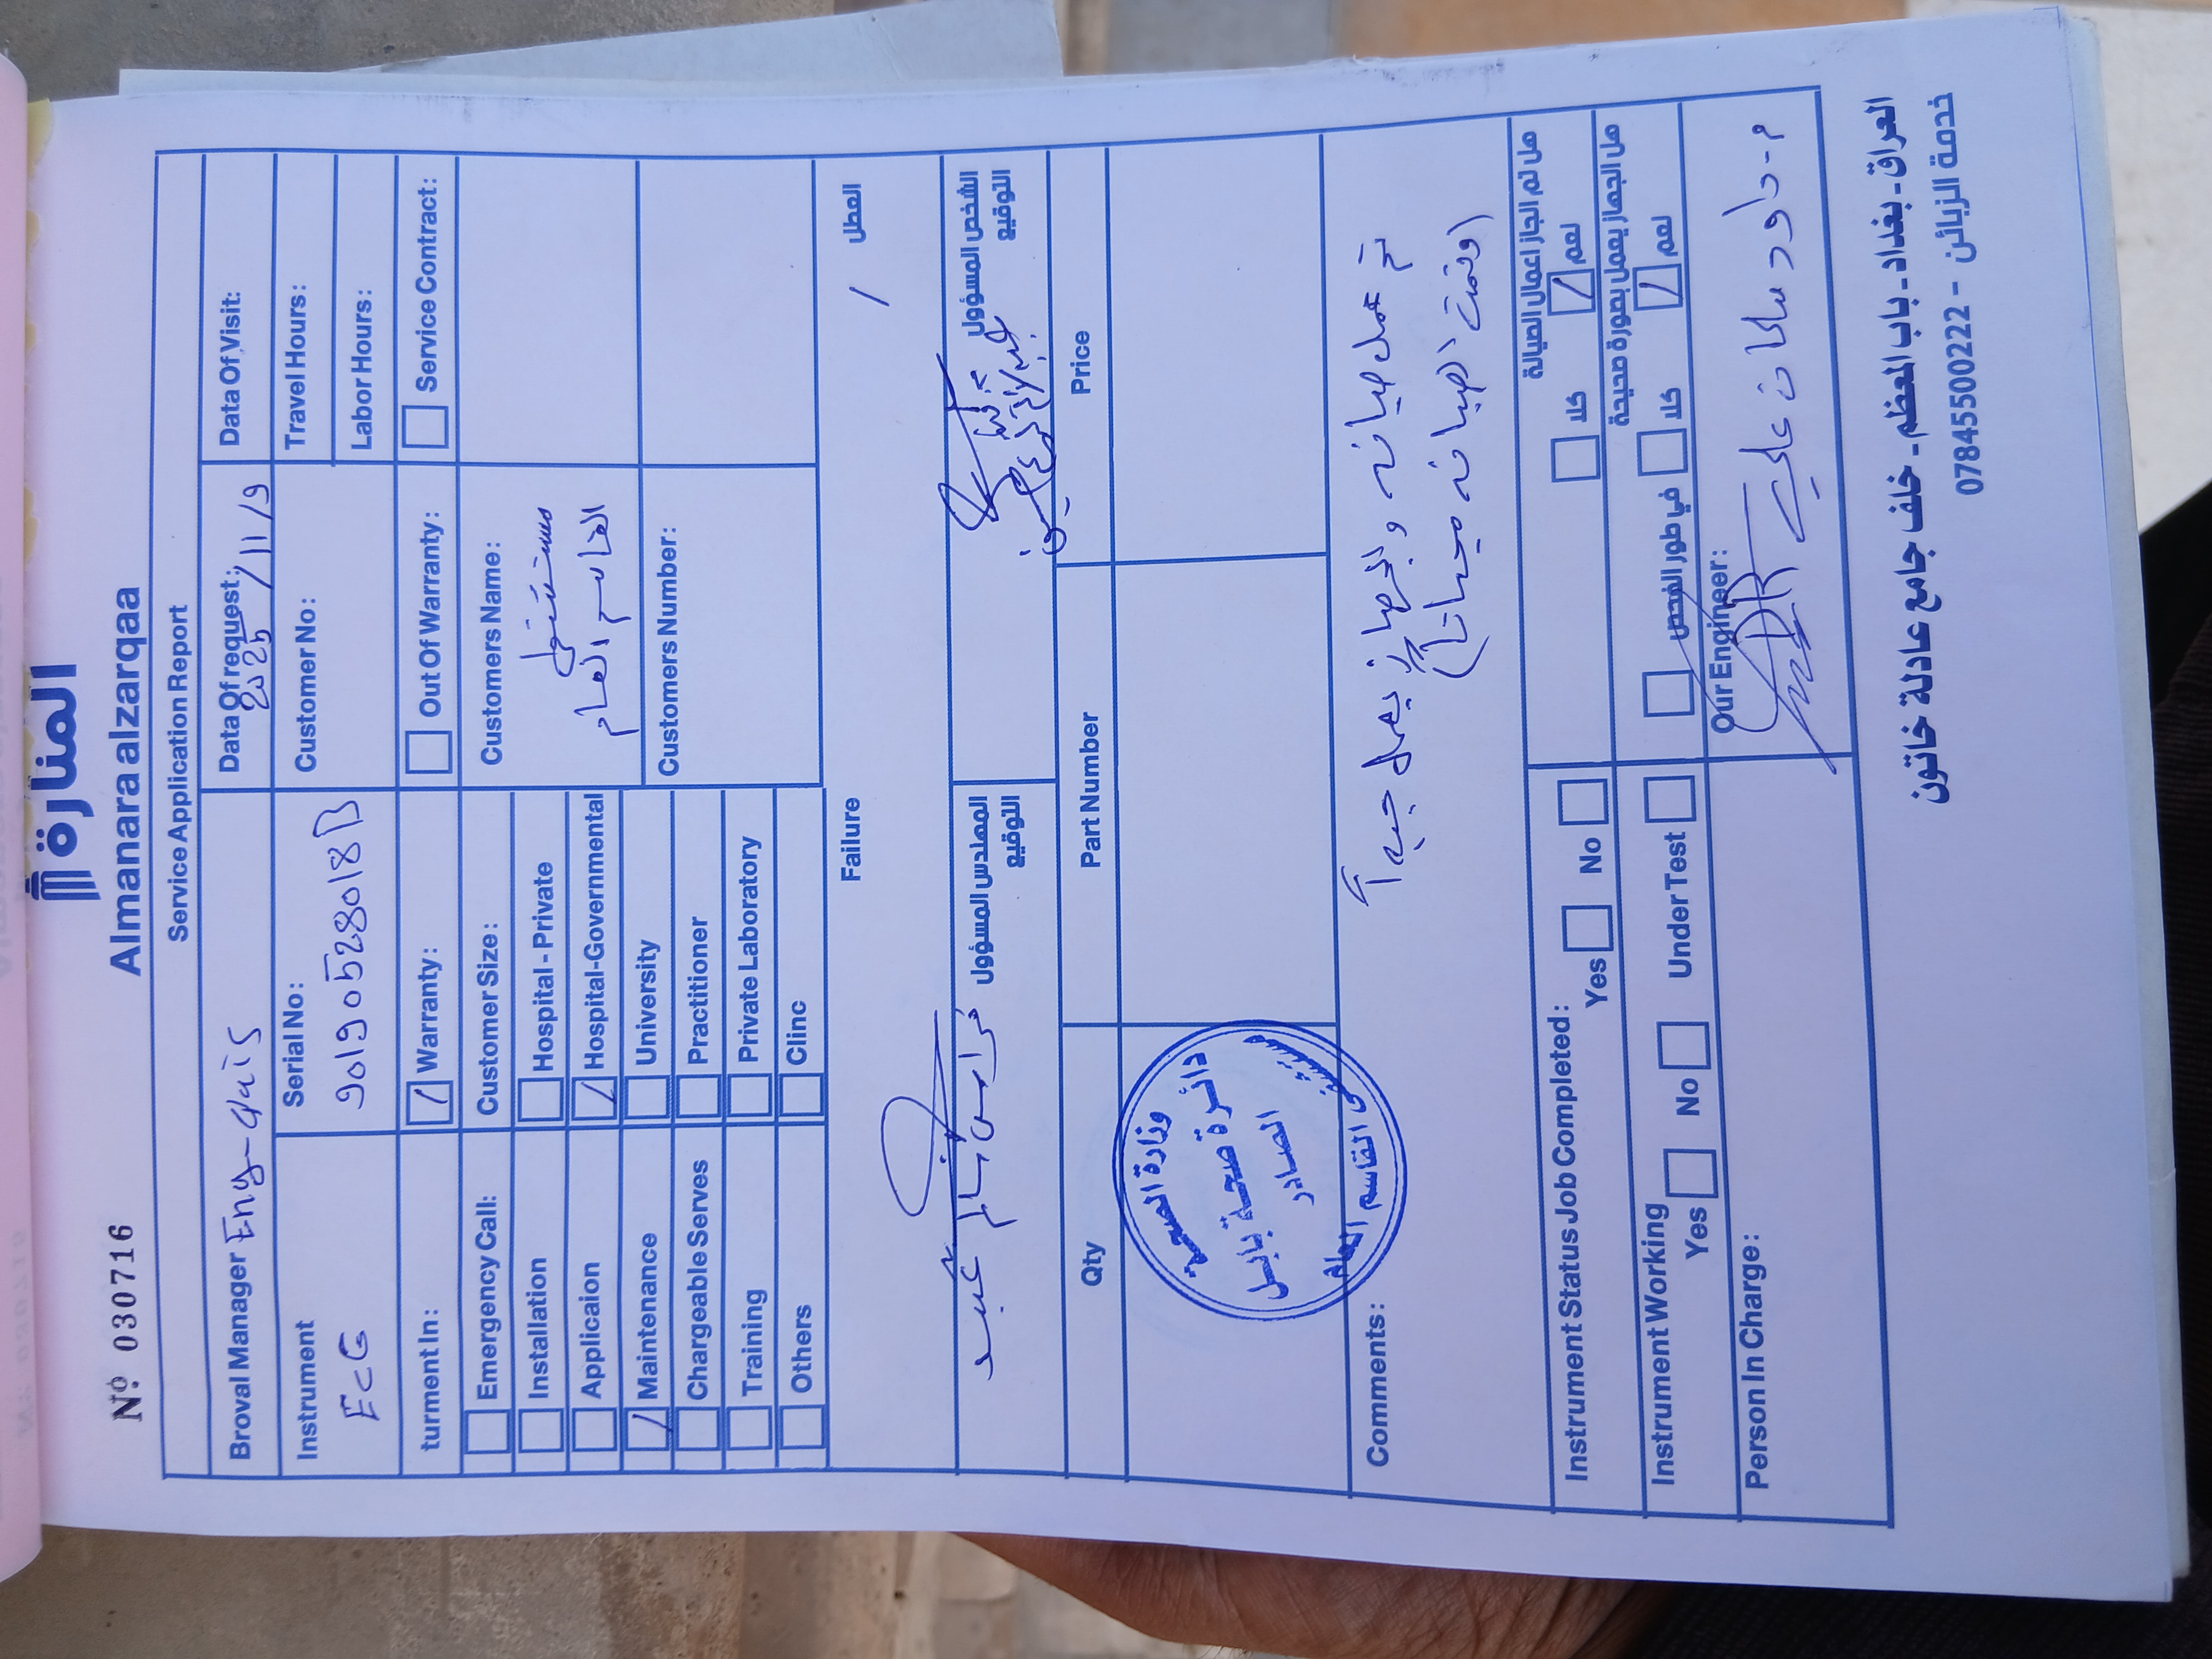 Nº 030716
المنارة
Almanara alzarqaa
Service Application Report
Broval Manager Eng-qais
Data Of request:
2025/11/9
Data Of Visit:
Instrument
ECG
Serial No:
90190528018B
Customer No:
Travel Hours:
Labor Hours:
turment In:
Warranty:
Out Of Warranty:
Service Contract:
Emergency Call:
Customer Size:
Customers Name:
مستشفى
القاسم العام
Installation
Hospital - Private
Applicaion
Hospital-Governmental
Maintenance
University
Customers Number:
Chargeable Serves
Practitioner
Training
Private Laboratory
Others
Clinc
Failure
/
العطل
المهندس المسؤول
التوقيع
الشخص المسؤول
التوقيع
Qty
Part Number
Price
وزارة الصحة
دائرة صحة بابل
الصادر
مستشفى القاسم العام
Comments:
تم عمل صيانه والجهاز يعمل جيداً
(وتمت الصيانه مجاناً)
Instrument Status Job Completed:
Yes
No
هل تم انجاز اعمال الصيانة
كلا
نعم
Instrument Working
Yes
No
Under Test
هل الجهاز يعمل بصورة صحيحة
في طور الفحص
كلا
نعم
Person In Charge:
Our Engineer:
م-داود سلمان علي
العراق - بغداد - باب المعظم - خلف جامع عادلة خاتون
خدمة الزبائن - 07845500222